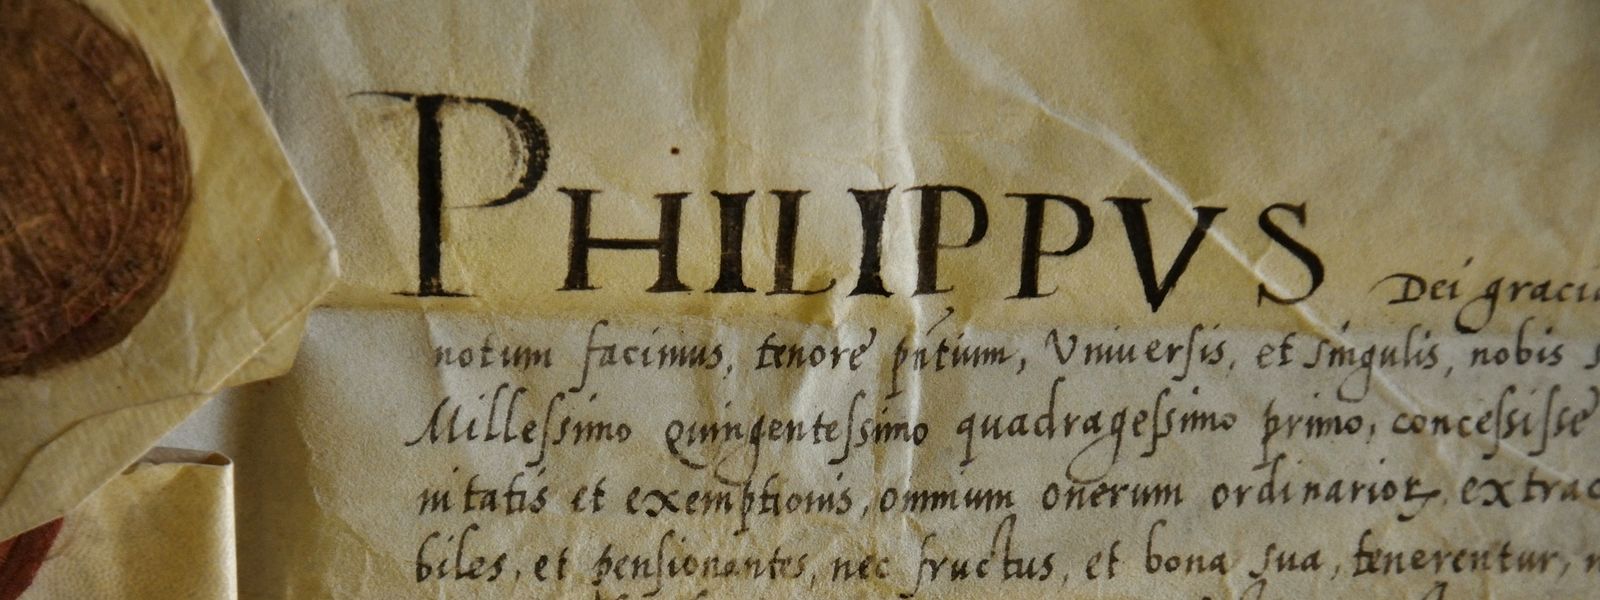 PHILIPPVS Dei graci
notum facimus, tenore pñtium, Vniuerſis, et ſingulis, nobis
Milleſsimo Quingenteſsimo quadrageſsimo primo, conceſsiſse
nitatis et exemptionis, omnium onerum ordinarioꝝ, extrao
biles, et penſionantes, nec fructus, et bona sua, tenerentur,